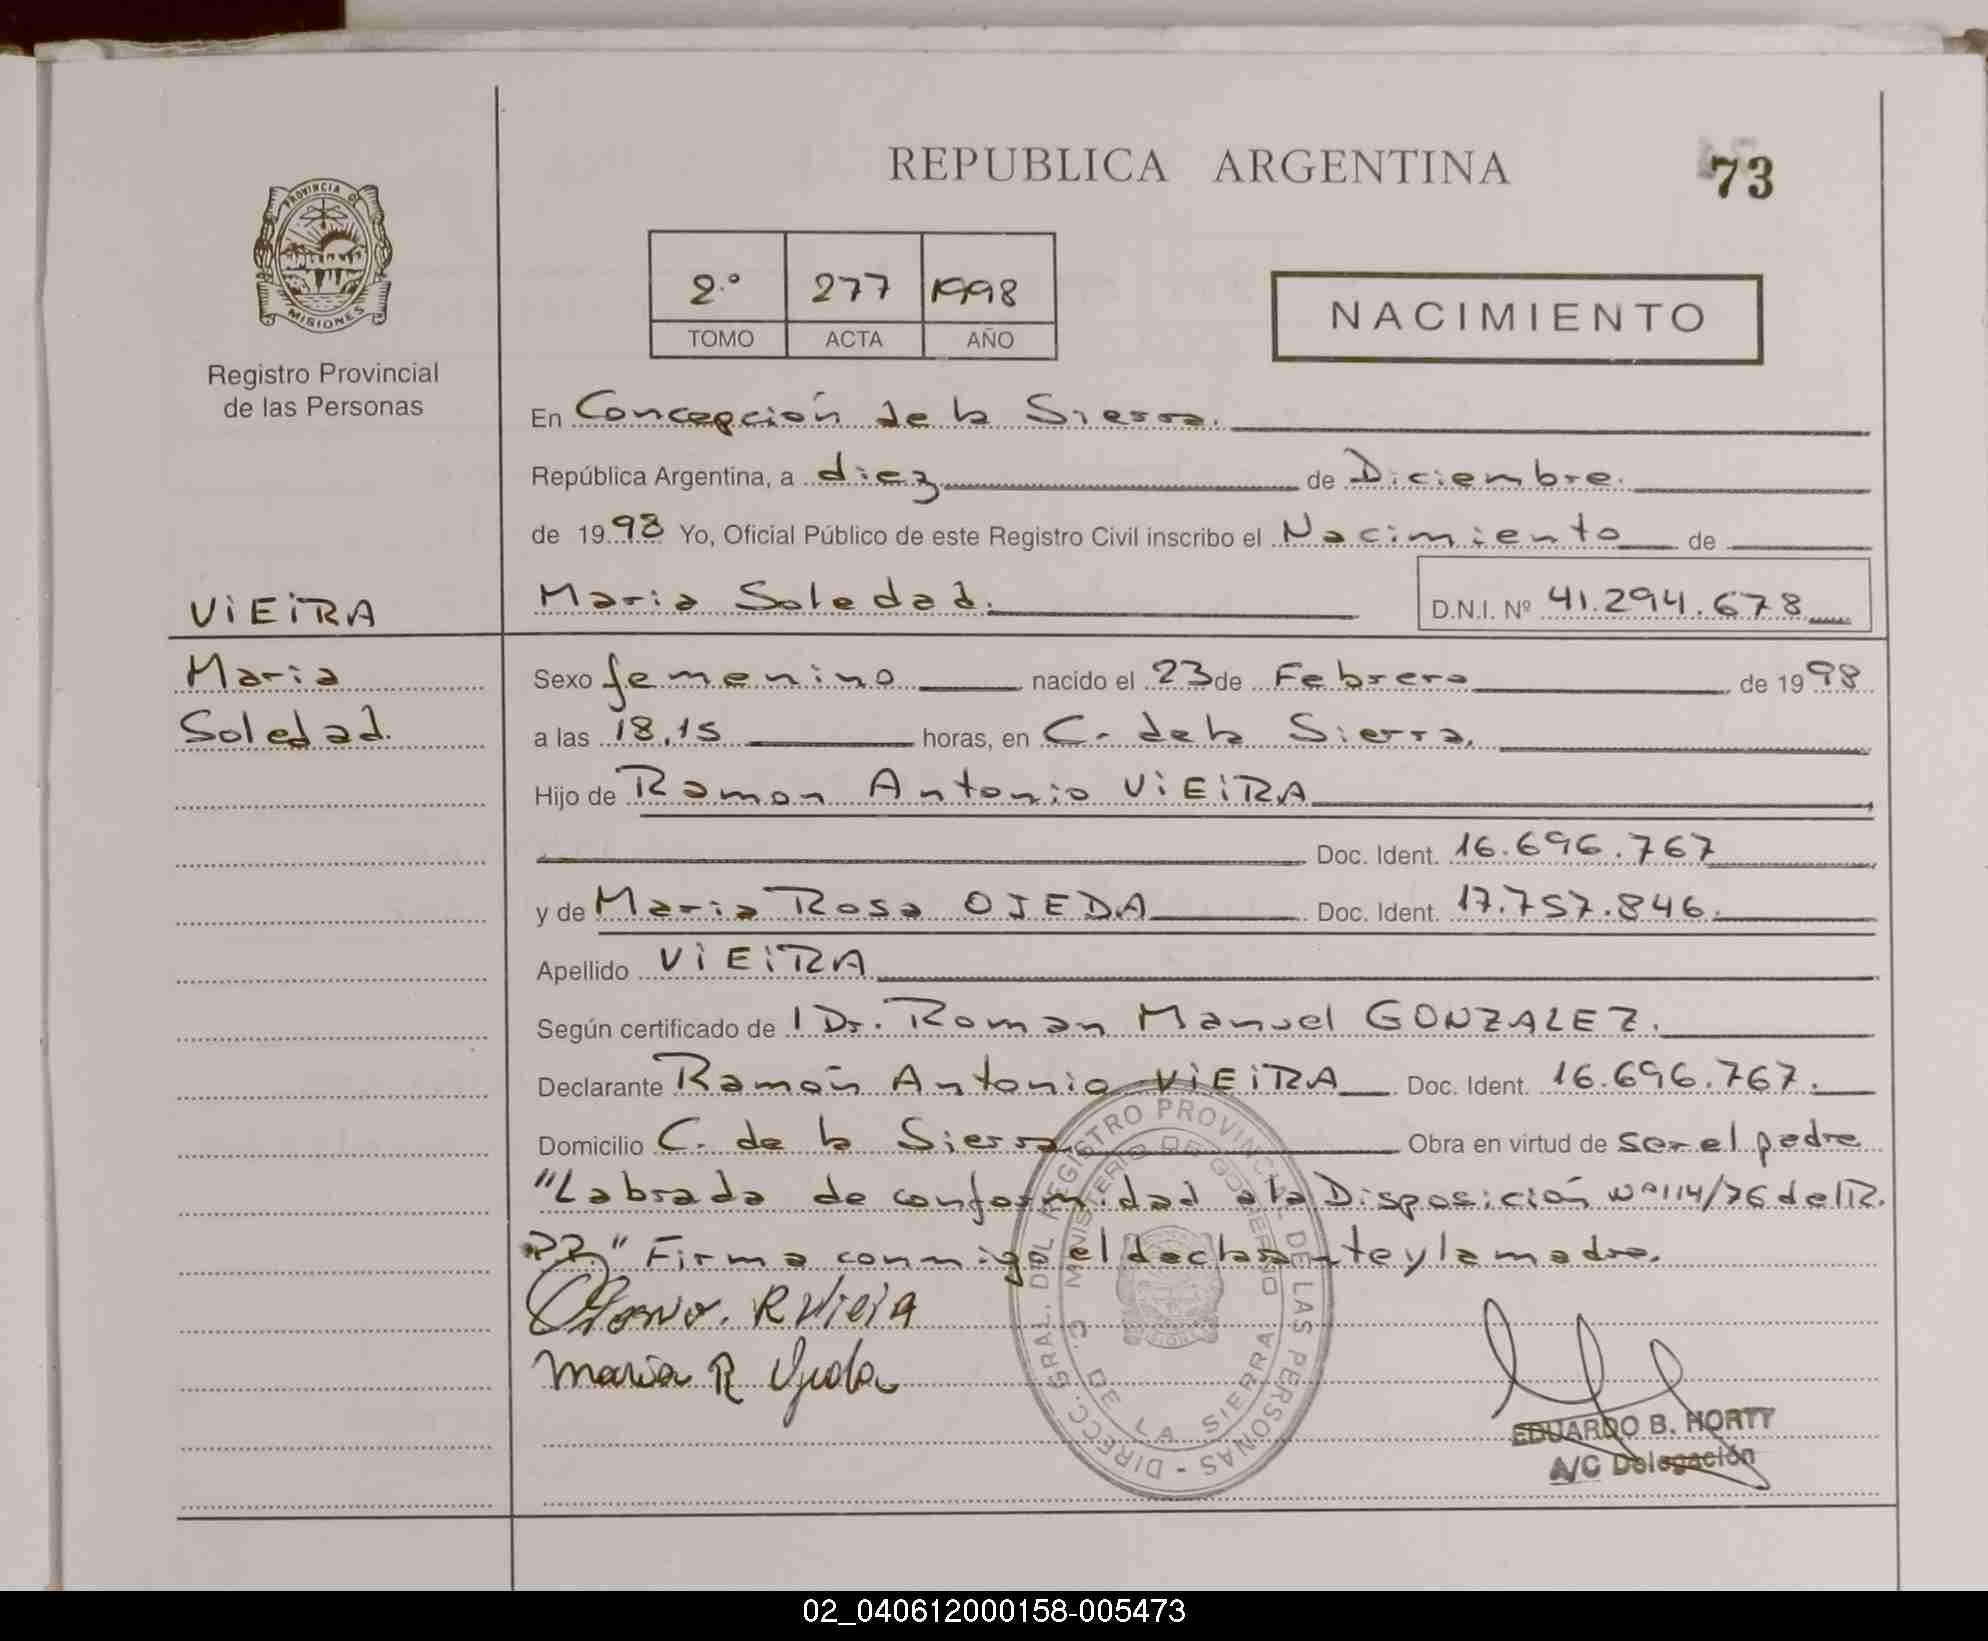 REPUBLICA ARGENTINA
73
PROVINCIA DE
MISIONES
Registro Provincial
de las Personas
2.º 277 1998
TOMO ACTA AÑO
NACIMIENTO
En Concepción de la Sierra.
República Argentina, a diez de Diciembre.
de 1998 Yo, Oficial Público de este Registro Civil inscribo el Nacimiento de
VIEIRA
Maria Soledad. D.N.I. Nº 41.294.678
Maria
Soledad.
Sexo femenino nacido el 23 de Febrero de 1998
a las 18,15 horas, en C. de la Sierra.
Hijo de Ramon Antonio VIEIRA
Doc. Ident. 16.696.767
y de Maria Rosa OJEDA Doc. Ident. 17.757.846.
Apellido VIEIRA
Según certificado de l Dr. Roman Manuel GONZALEZ.
Declarante Ramón Antonio VIEIRA Doc. Ident. 16.696.767.
Domicilio C. de la Sierra Obra en virtud de ser el padre
"Labrada de conformidad a la Disposición Nº 114/76 del R.
PP." Firma conmigo el declarante y la madre.
R Vieira
Maria R Ojeda
DIRECC. GRAL. DEL REGISTRO PROVINCIAL DE LAS PERSONAS -
MINISTERIO DE GOBIERNO
C. DE LA SIERRA
EDUARDO B. HORTT
A/C Delegación
02_040612000158-005473